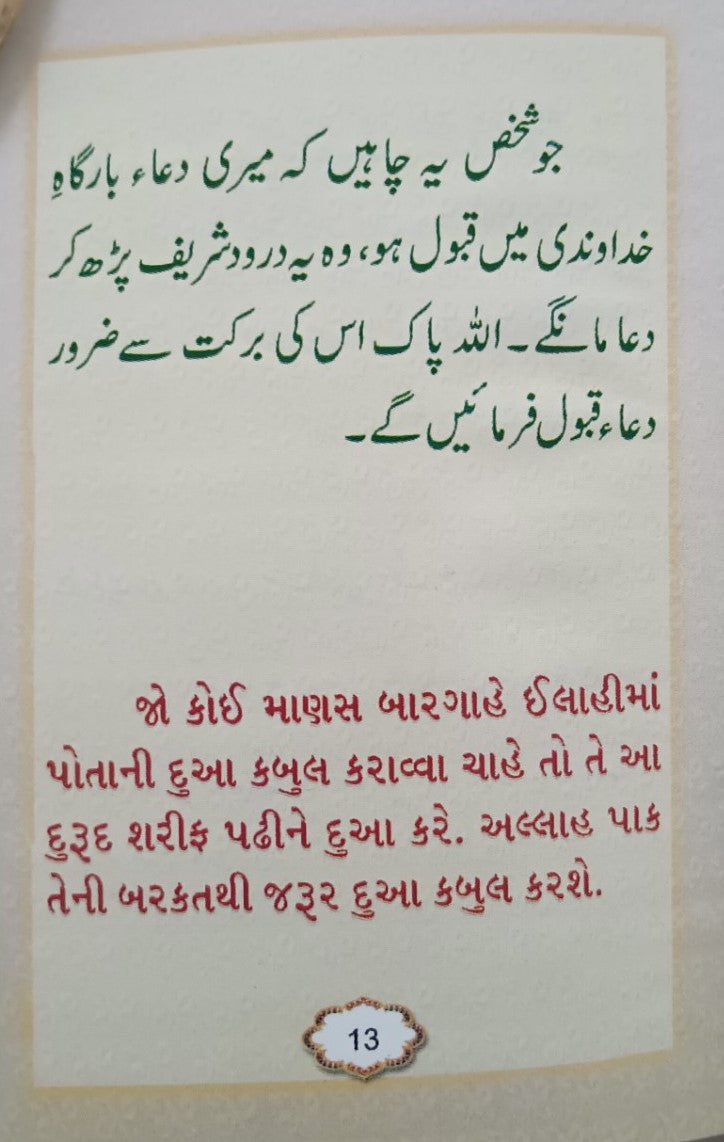 جو شخص یہ چاہیں کہ میری دعاء بارگاہِ
خداوندی میں قبول ہو، وہ یہ درود شریف پڑھ کر
دعا مانگے۔ اللہ پاک اس کی برکت سے ضرور
دعاء قبول فرمائیں گے۔
જો કોઈ માણસ બારગાહે ઈલાહીમાં
પોતાની દુઆ કબુલ કરાવ્વા ચાહે તો તે આ
દુરૂદ શરીફ પઢીને દુઆ કરે. અલ્લાહ પાક
તેની બરકતથી જરૂર દુઆ કબુલ કરશે.
13